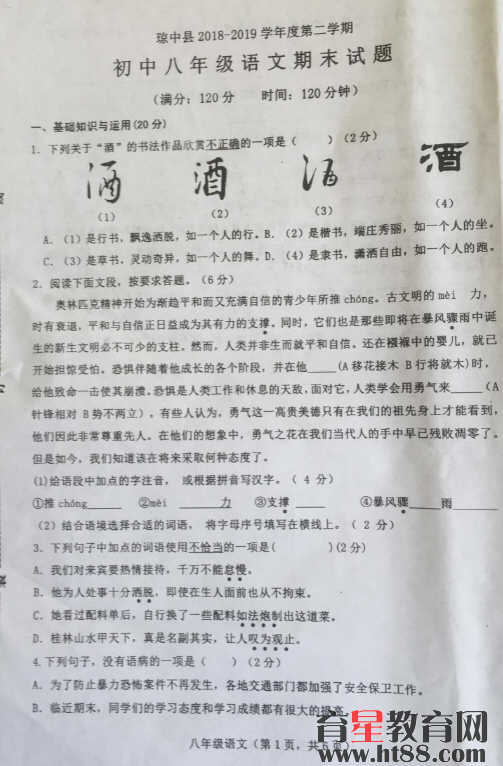 琼中县 2018-2019 学年度第二学期
初中八年级语文期末试题
(满分：120 分 时间：120 分钟)
一、基础知识与运用(20 分)
1. 下列关于“酒”的书法作品欣赏不正确的一项是（ ）(2 分)
酒 酒 酒 酒
(1) (2) (3) (4)
A. (1) 是行书，飘逸洒脱，如一个人的行。B. (2) 是楷书，端庄秀丽，如一个人的坐。
C. (3) 是草书，灵动奇异，如一个人的舞。D. (4) 是隶书，潇洒自由，如一个人的跑。
2. 阅读下面文段，按要求答题。（6 分）
奥林匹克精神开始为渐趋平和而又充满自信的青少年所推 chóng。古文明的 mèi 力，
时有衰退，平和与自信正日益成为其有力的支撑。同时，它们也是那些即将在暴风骤雨中诞
生的新生文明必不可少的支柱。然而，人类并非生而就平和自信。还在襁褓中的婴儿，就已
开始担惊受怕。恐惧伴随着他成长的各个阶段，并在他____(A 移花接木 B 行将就木)时，
给他致命一击使其崩溃。恐惧是人类工作和休息的天敌，面对它，人类学会用勇气来____（A
针锋相对 B 势不两立）。有些人认为，勇气这一高贵美德只有在我们的祖先身上才能看到，
他们因此非常尊重先人。在他们的想象中，勇气之花在我们当代人的手中早已残败凋零了。
但是如今，我们知道该在将来采取何种态度了。
(1)给语段中加点的字注音， 或根据拼音写汉字。（ 4 分）
①推 chóng____ ②mèi ____力 ③支撑 ____ ④暴风骤____雨____
（2）结合语境选择合适的词语， 将字母序号填写在横线上。（ 2 分）
3. 下列句子中加点的词语使用不恰当的一项是( )(2 分)
A. 我们对来宾要热情接待，千万不能怠慢。
B. 他为人处事十分洒脱，即使在生人面前也从不拘束。
C. 她看过配料单后，自行换了一些配料如法炮制出这道菜。
D. 桂林山水甲天下，真是名副其实，让人叹为观止。
4. 下列句子，没有语病的一项是（ ）(2 分)
A. 为了防止暴力恐怖案件不再发生，各地交通部门都加强了安全保卫工作。
B. 临近期末，同学们的学习态度和学习成绩都有很大的提高。
八年级语文（第 1 页，共 6 页）
育星教育网
www.ht88.com